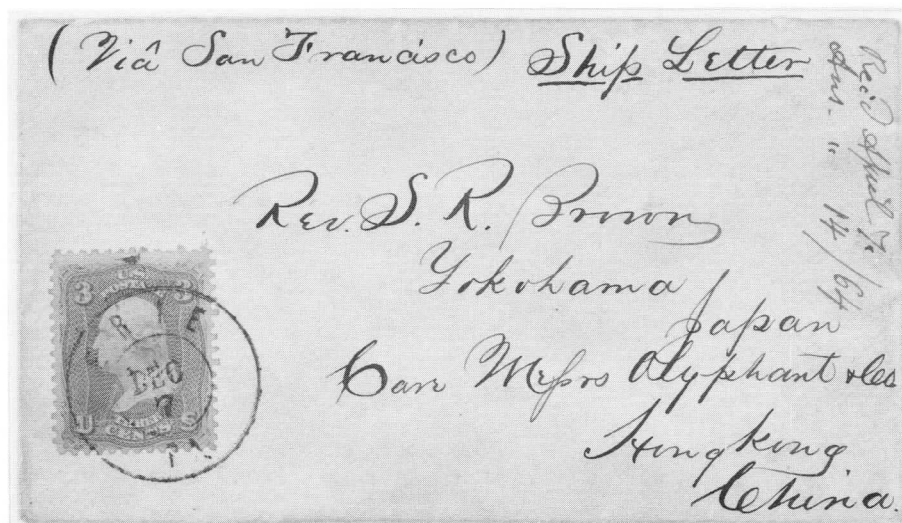 (Viâ San Francisco) Ship Letter
Rec'd April 7.
Ans. " 14/64
Rev. S. R. Brown
Yokohama
Japan
Care Messrs Olyphant & Co
Hongkong
China.
3 U.S. 3
DEC
7
PA
U CENTS S